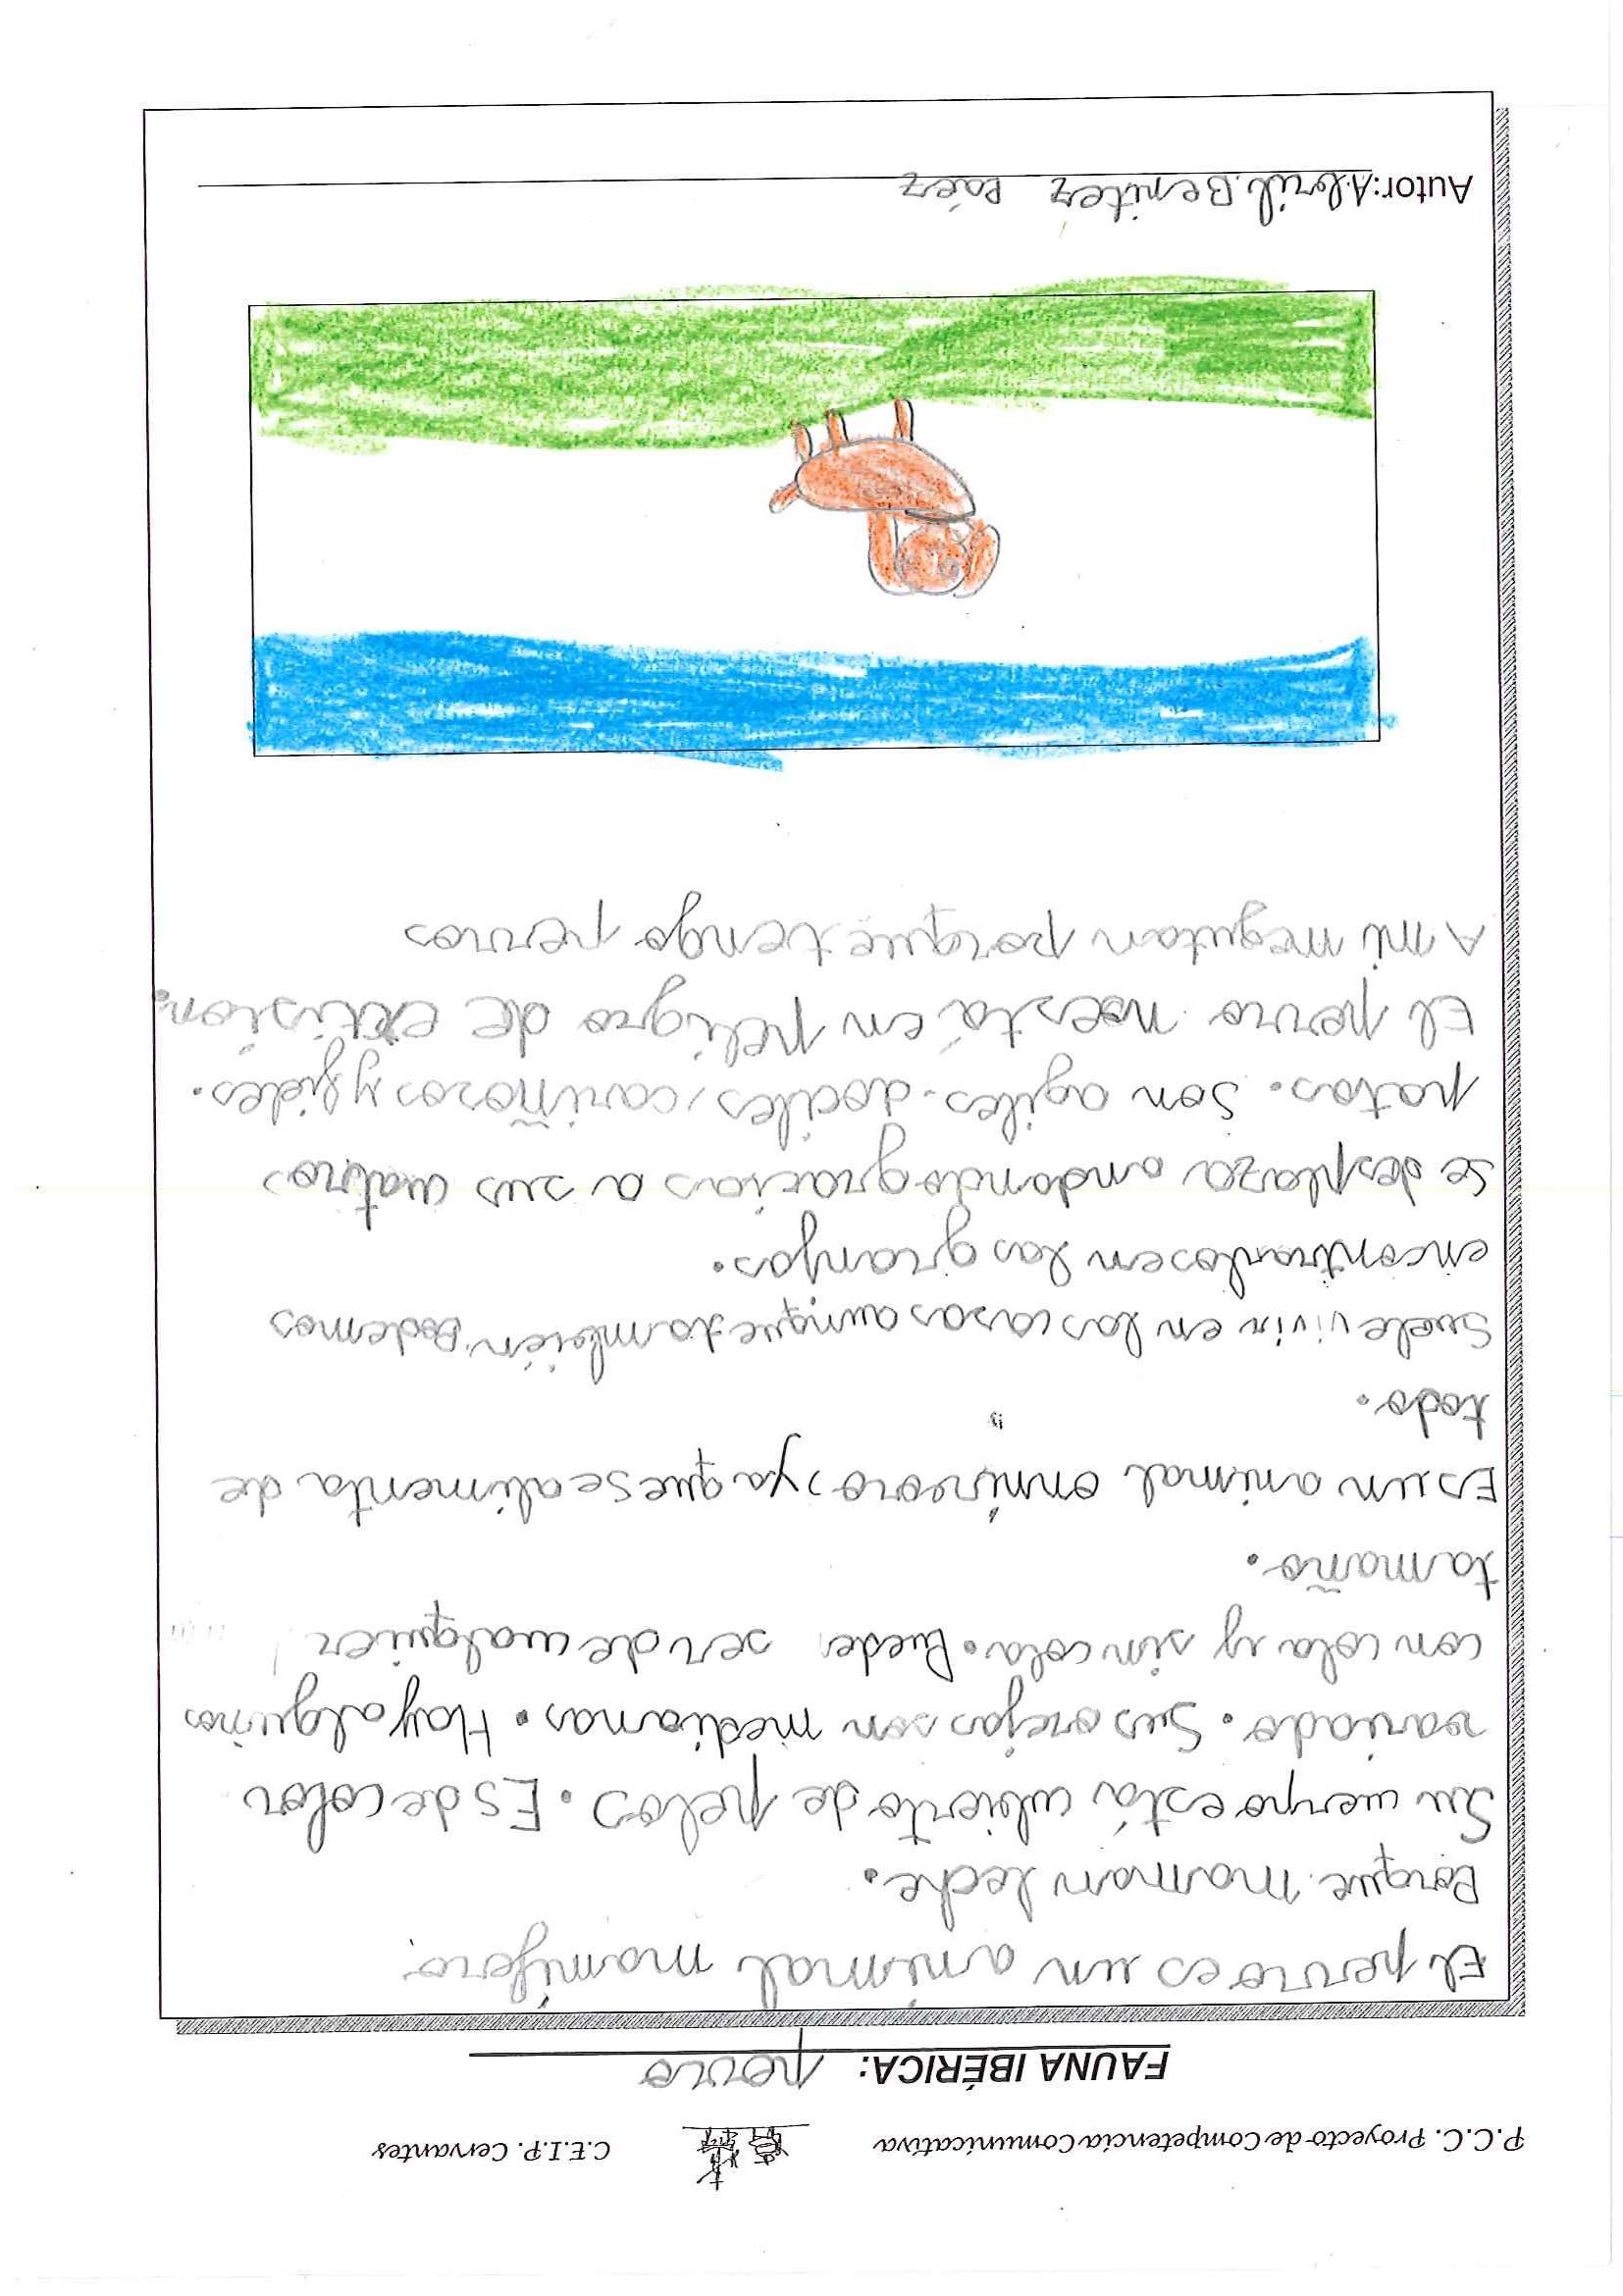 P.C.C. Proyecto de Competencia Comunicativa C.E.I.P. Cervantes
FAUNA IBÉRICA: perro
El perro es un animal mamífero
Porque maman leche.
Su cuerpo está cubierto de pelos. Es de color
variado. Sus orejas son medianas. Hay algunos
con cola y sin cola. Puede ser de cualquier
tamaño.
Es un animal omnívoro, ya que se alimenta de
todo.
Suele vivir en las casas aunque también Podemos
encontrarlos en las granjas.
Se desplaza andando gracias a sus cuatros
patas. Son agiles. dociles, cariñosos y fieles.
El perro no está en peligro de extision.
A mí me gutan porque tengo perros
Autor: Abril Benitez Páez